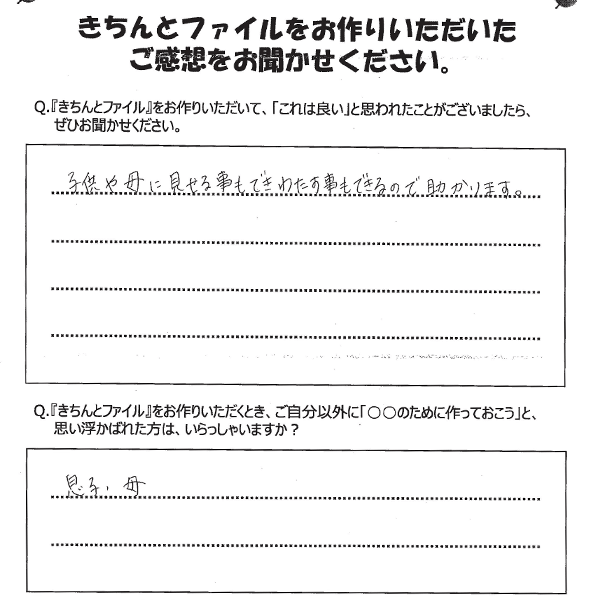 きちんとファイルをお作りいただいた
ご感想をお聞かせください。
Q.『きちんとファイル』をお作りいただいて、「これは良い」と思われたことがございましたら、
ぜひお聞かせください。
子供や母に見せる事もできわたす事もできるので助かります。
Q.『きちんとファイル』をお作りいただくとき、ご自分以外に「○○のために作っておこう」と、
思い浮かばれた方は、いらっしゃいますか？
息子、母